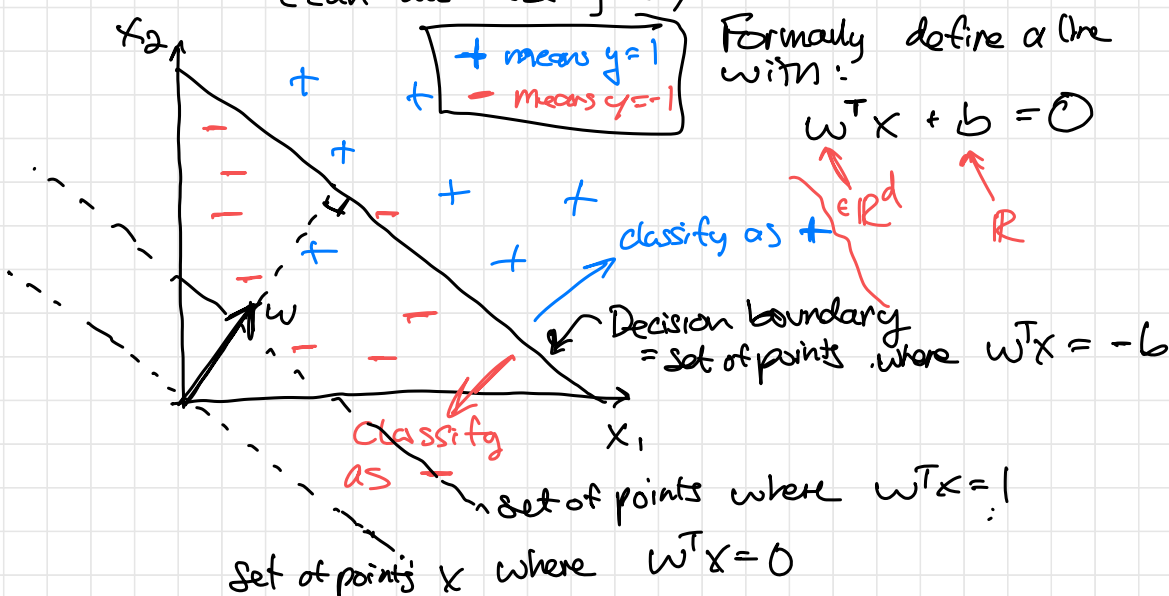 x₂
+ means y=1
- means y=-1
Formally define a line
with:
wᵀx + b = 0
∈ℝᵈ
ℝ
classify as +
w
Decision boundary
= set of points where wᵀx = -b
Classify
as -
x₁
set of points where wᵀx=1
set of points x where wᵀx=0